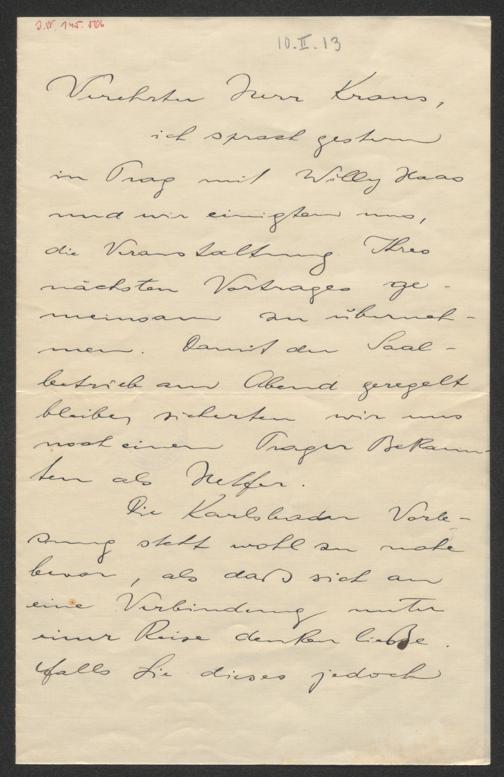 J.N. 145.586
10.II.13
Verehrter Herr Kraus,
ich sprach gestern
in Prag mit Willy Haas
und wir einigten uns,
die Veranstaltung Ihres
nächsten Vortrages ge-
meinsam zu überneh-
men. Damit der Saal-
betrieb am Abend geregelt
bleibe, sicherten wir uns
noch einen Prager Bekann-
ten als Helfer.
Die Karlsbader Vorle-
sung steht wohl zu nahe
bevor, als daß sich an
eine Verbindung unter
einer Reise denken ließe.
Falls Sie dieses jedoch